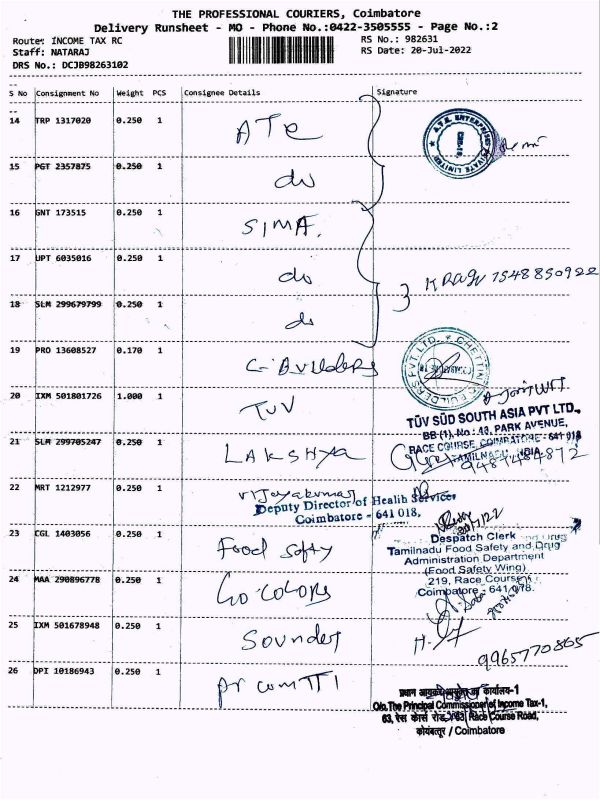 THE PROFESSIONAL COURIERS, Coimbatore
Delivery Runsheet - MO - Phone No.:0422-3505555 - Page No.:2
Route: INCOME TAX RC
RS No.: 982631
Staff: NATARAJ
RS Date: 20-Jul-2022
DRS No.: DCJB98263102
S No Consignment No Weight PCS Consignee Details Signature
14 TRP 1317020 0.250 1 ATE
15 PGT 2357875 0.250 1 do
16 GNT 173515 0.250 1 SIMA.
17 UPT 6035016 0.250 1 do
K Ragu 7548850922
18 SLM 299679799 0.250 1 do
19 PRO 13608527 0.170 1 C-Builders
20 IXM 501801726 1.000 1 TUV
TÜV SÜD SOUTH ASIA PVT LTD.,
BB (1), No : 43, PARK AVENUE,
RACE COURSE, COIMBATORE - 641 018
TAMILNADU, INDIA
21 SLM 299705247 0.250 1 LAKSHYA
9487484872
22 MRT 1212977 0.250 1 vijayakumar
Deputy Director of Health Services
Coimbatore - 641 018,
23 CGL 1403056 0.250 1 Food Safty
Despatch Clerk
Tamilnadu Food Safety and Drug
Administration Department
(Food Safety Wing)
219, Race Course,
Coimbatore - 641 018.
24 MAA 290896778 0.250 1 Go-Colors
25 IXM 501678948 0.250 1 Sounder
9965770865
26 DPT 10186943 0.250 1 pr comTTI
प्रधान आयकर आयुक्त का कार्यालय-1
O/o.The Principal Commissioner of Income Tax-1,
63, रेस कोर्स रोड, / 63, Race Course Road,
कोयंबत्तूर / Coimbatore